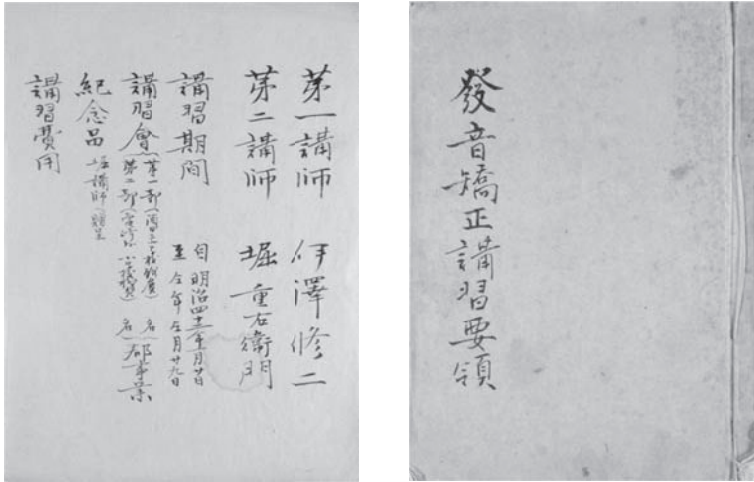 發音矯正講習要領
第一講師 伊澤修二
第二講師 堀重右衛門
講習期間 自明治四十三年 月廿日
至仝年 月廿九日
講習會 第一部
第二部
郡事業
紀念品 堀講師
講習費用